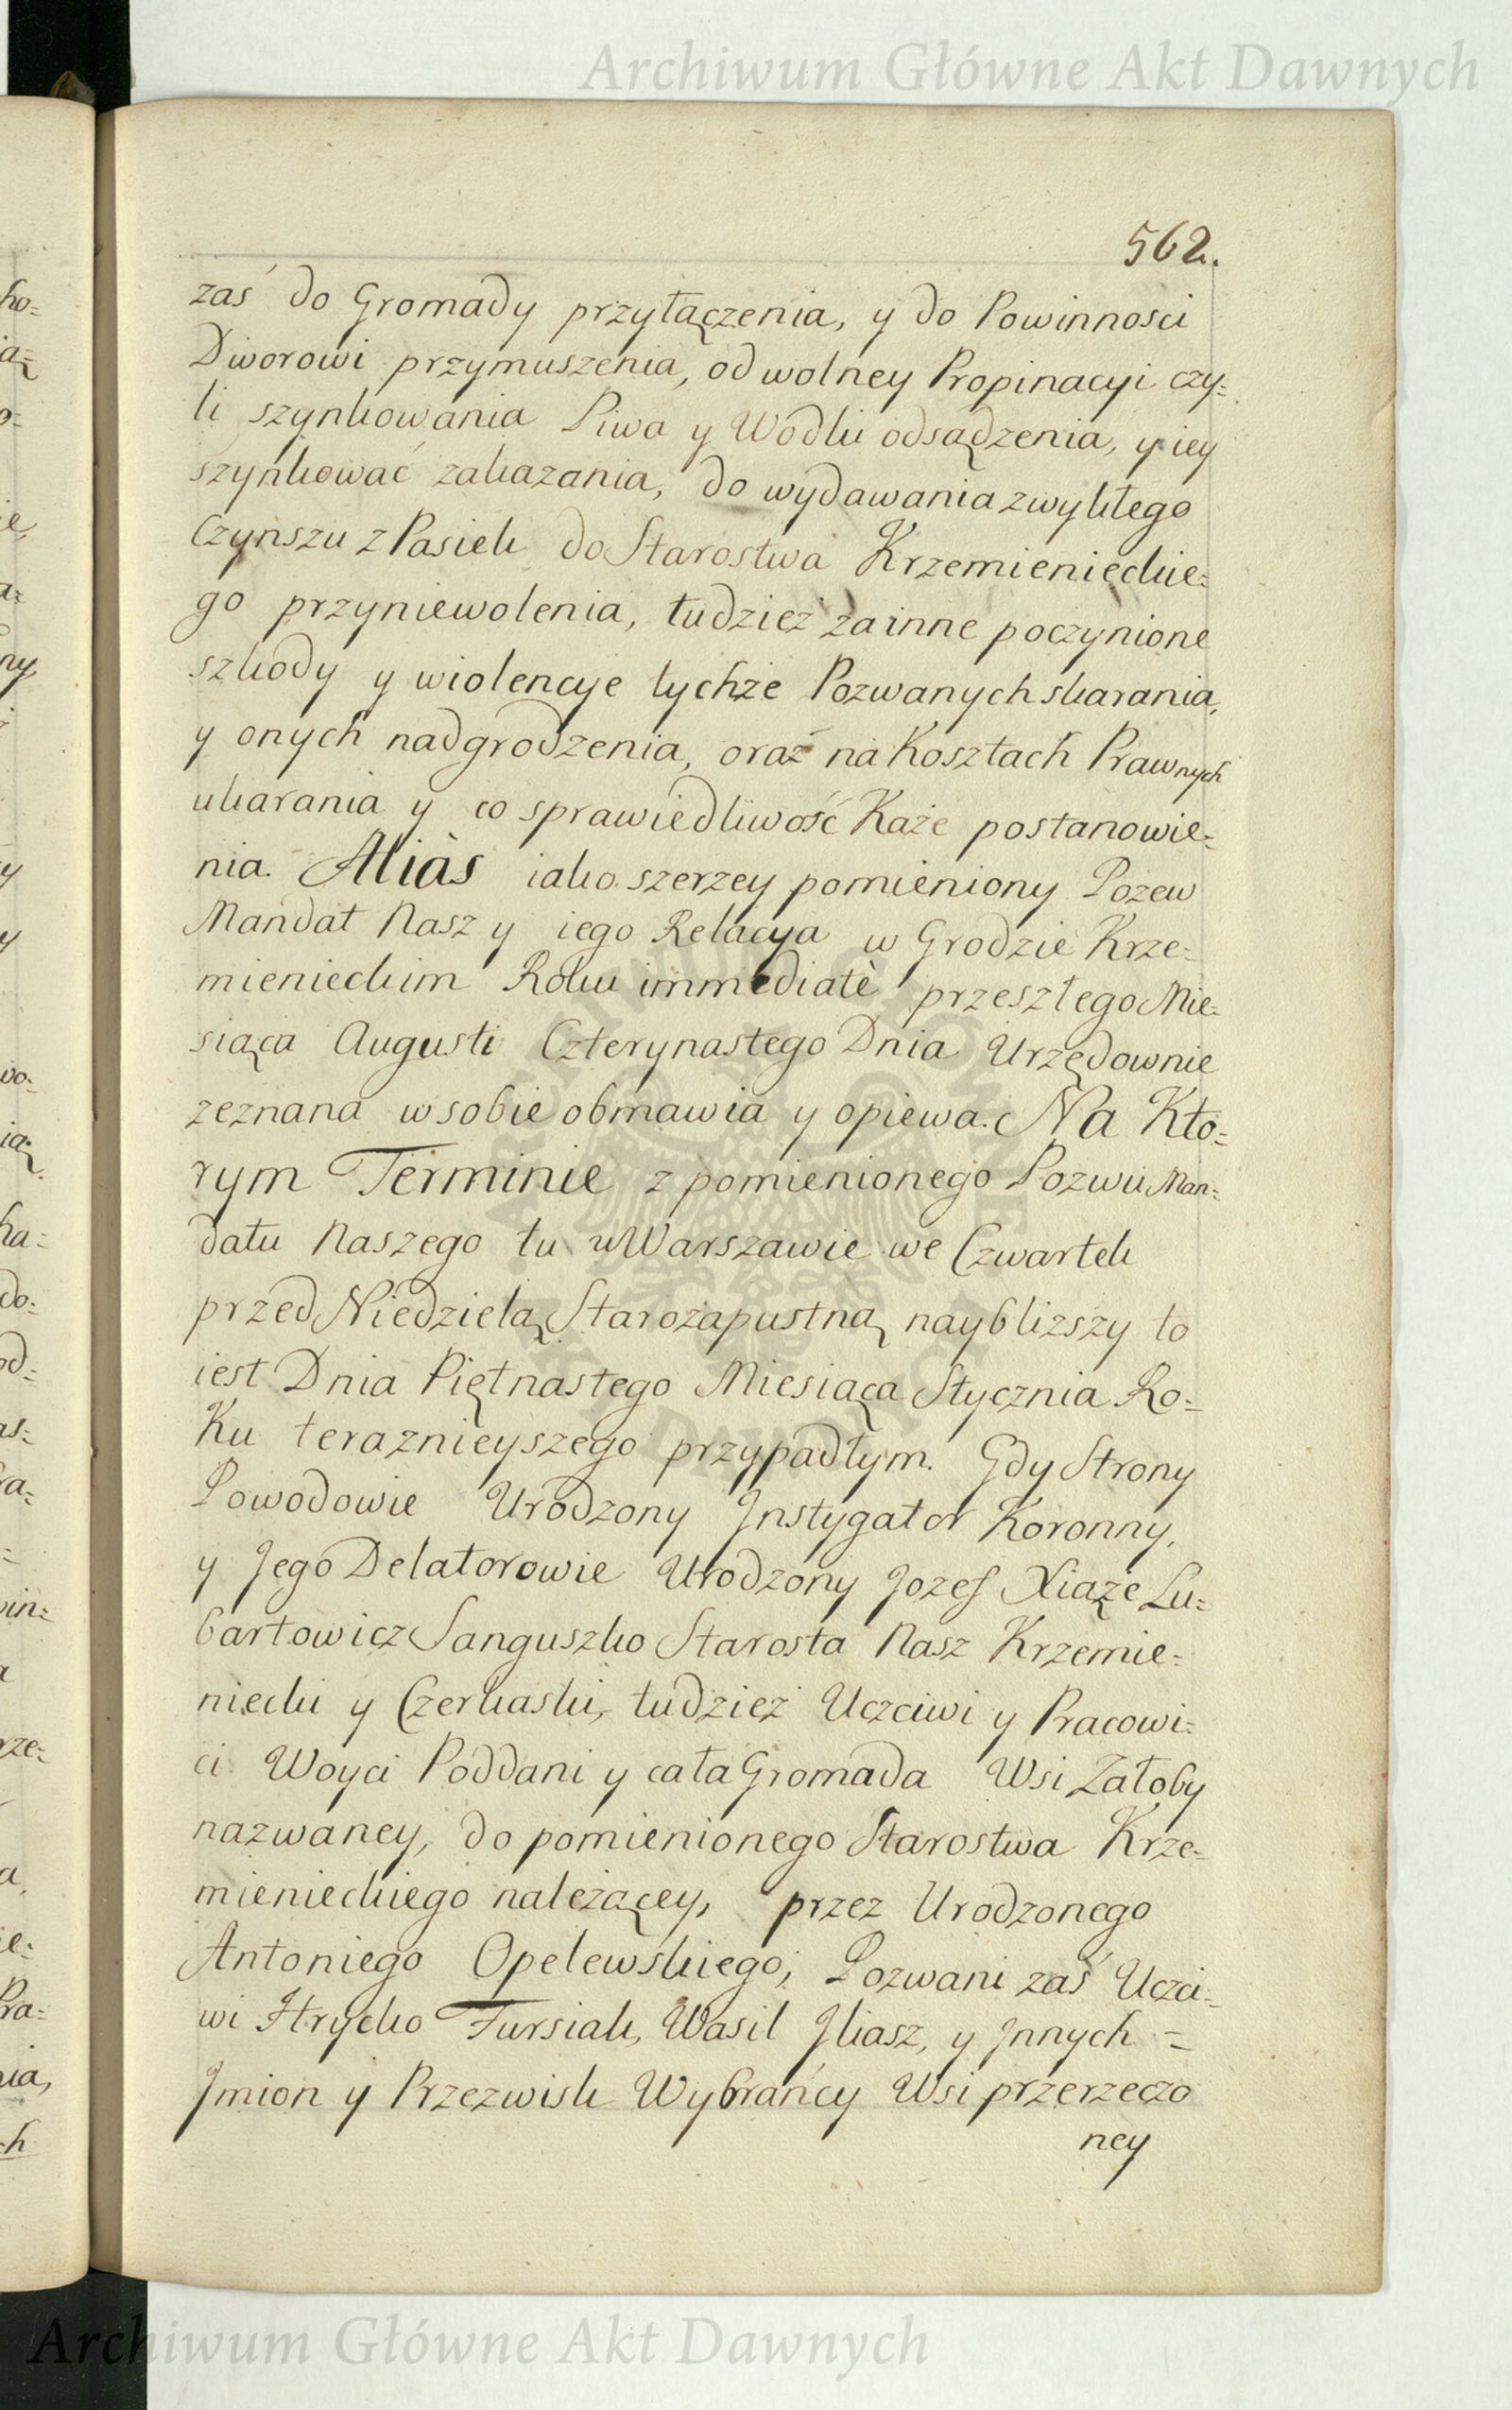 Archiwum Główne Akt Dawnych
562.
zaś do Gromady przyłączenia, y do Powinności
Dworowi przymuszenia, od wolney Propinacyi czy=
li szynkowania Piwa y Wodki odsądzenia, y iey
szynkować zakazania, do wydawania zwykłego
Czynszu z Pasiek do Starostwa Krzemienieckie=
go przyniewolenia, tudzież za inne poczynione
szkody y wiolencye tychże Pozwanych skarania,
y onych nadgrodzenia, oraz na Kosztach Prawnych
ukarania y co sprawiedliwość Każe postanowie=
nia. Aliàs iako szerzey pomieniony Pozew
Mandat Nasz y iego Relacya w Grodzie Krze=
mienieckim Roku immediatè przeszłego Mie=
siąca Augusti Czterynastego Dnia Urzędownie
zeznana w sobie obmawia y opiewa. Na Kto=
rym Terminie z pomienionego Pozwu Man=
datu Naszego tu w Warszawie we Czwartek
przed Niedzielą Starozapustną naybliższy to
iest Dnia Piętnastego Miesiąca Stycznia Ro=
Ku teraznieyszego przypadłym. Gdy Strony
Powodowie Urodzony Jnstygator Koronny,
y Jego Delatorowie Urodzony Jozef Xiąże Lu=
bartowicz Sanguszko Starosta Nasz Krzemie=
niecki y Czerkaski, tudzież Uczciwi y Pracowi=
ci Woyci Poddani y cała Gromada Wsi Załoby
nazwaney, do pomienionego Starostwa Krze=
mienieckiego należącey, przez Urodzonego
Antoniego Opelewskiego, Pozwani zaś Uczci=
wi Hrycko Fursiak, Wasil Jliasz, y Jnnych =
Jmion y Przezwisk Wybrańcy Wsi przerzeczo
ney
Archiwum Główne Akt Dawnych